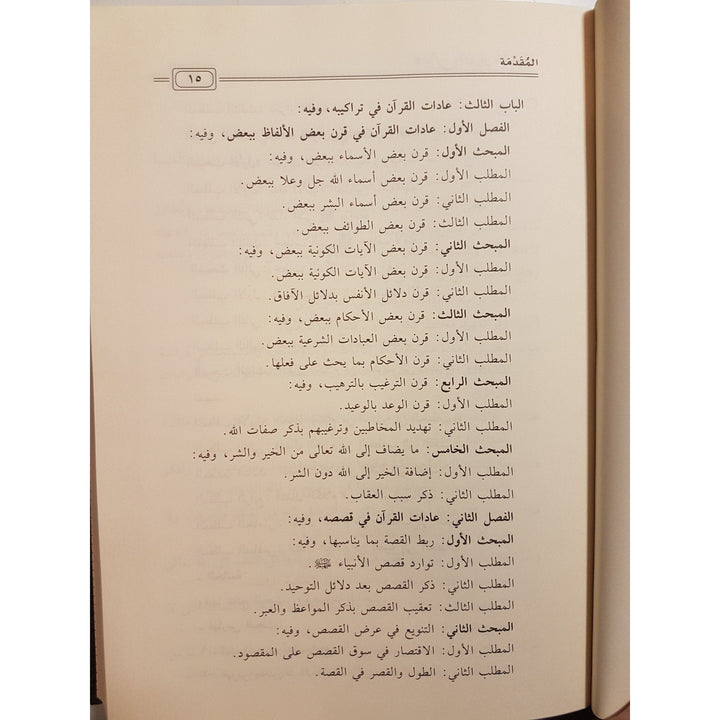 المُقَدِّمَة
١٥
الباب الثالث: عادات القرآن في تراكيبه، وفيه:
الفصل الأول: عادات القرآن في قرن بعض الألفاظ ببعض، وفيه:
المبحث الأول: قرن بعض الأسماء ببعض، وفيه:
المطلب الأول: قرن بعض أسماء الله جل وعلا ببعض.
المطلب الثاني: قرن بعض أسماء البشر ببعض.
المطلب الثالث: قرن بعض الطوائف ببعض.
المبحث الثاني: قرن بعض الآيات الكونية ببعض، وفيه:
المطلب الأول: قرن بعض الآيات الكونية ببعض.
المطلب الثاني: قرن دلائل الأنفس بدلائل الآفاق.
المبحث الثالث: قرن بعض الأحكام ببعض، وفيه:
المطلب الأول: قرن بعض العبادات الشرعية ببعض.
المطلب الثاني: قرن الأحكام بما يحث على فعلها.
المبحث الرابع: قرن الترغيب بالترهيب، وفيه:
المطلب الأول: قرن الوعد بالوعيد.
المطلب الثاني: تهديد المخاطبين وترغيبهم بذكر صفات الله.
المبحث الخامس: ما يضاف إلى الله تعالى من الخير والشر، وفيه:
المطلب الأول: إضافة الخير إلى الله دون الشر.
المطلب الثاني: ذكر سبب العقاب.
الفصل الثاني: عادات القرآن في قصصه، وفيه:
المبحث الأول: ربط القصة بما يناسبها، وفيه:
المطلب الأول: توارد قصص الأنبياء ﷺ.
المطلب الثاني: ذكر القصص بعد دلائل التوحيد.
المطلب الثالث: تعقيب القصص بذكر المواعظ والعبر.
المبحث الثاني: التنويع في عرض القصص، وفيه:
المطلب الأول: الاقتصار في سوق القصص على المقصود.
المطلب الثاني: الطول والقصر في القصة.